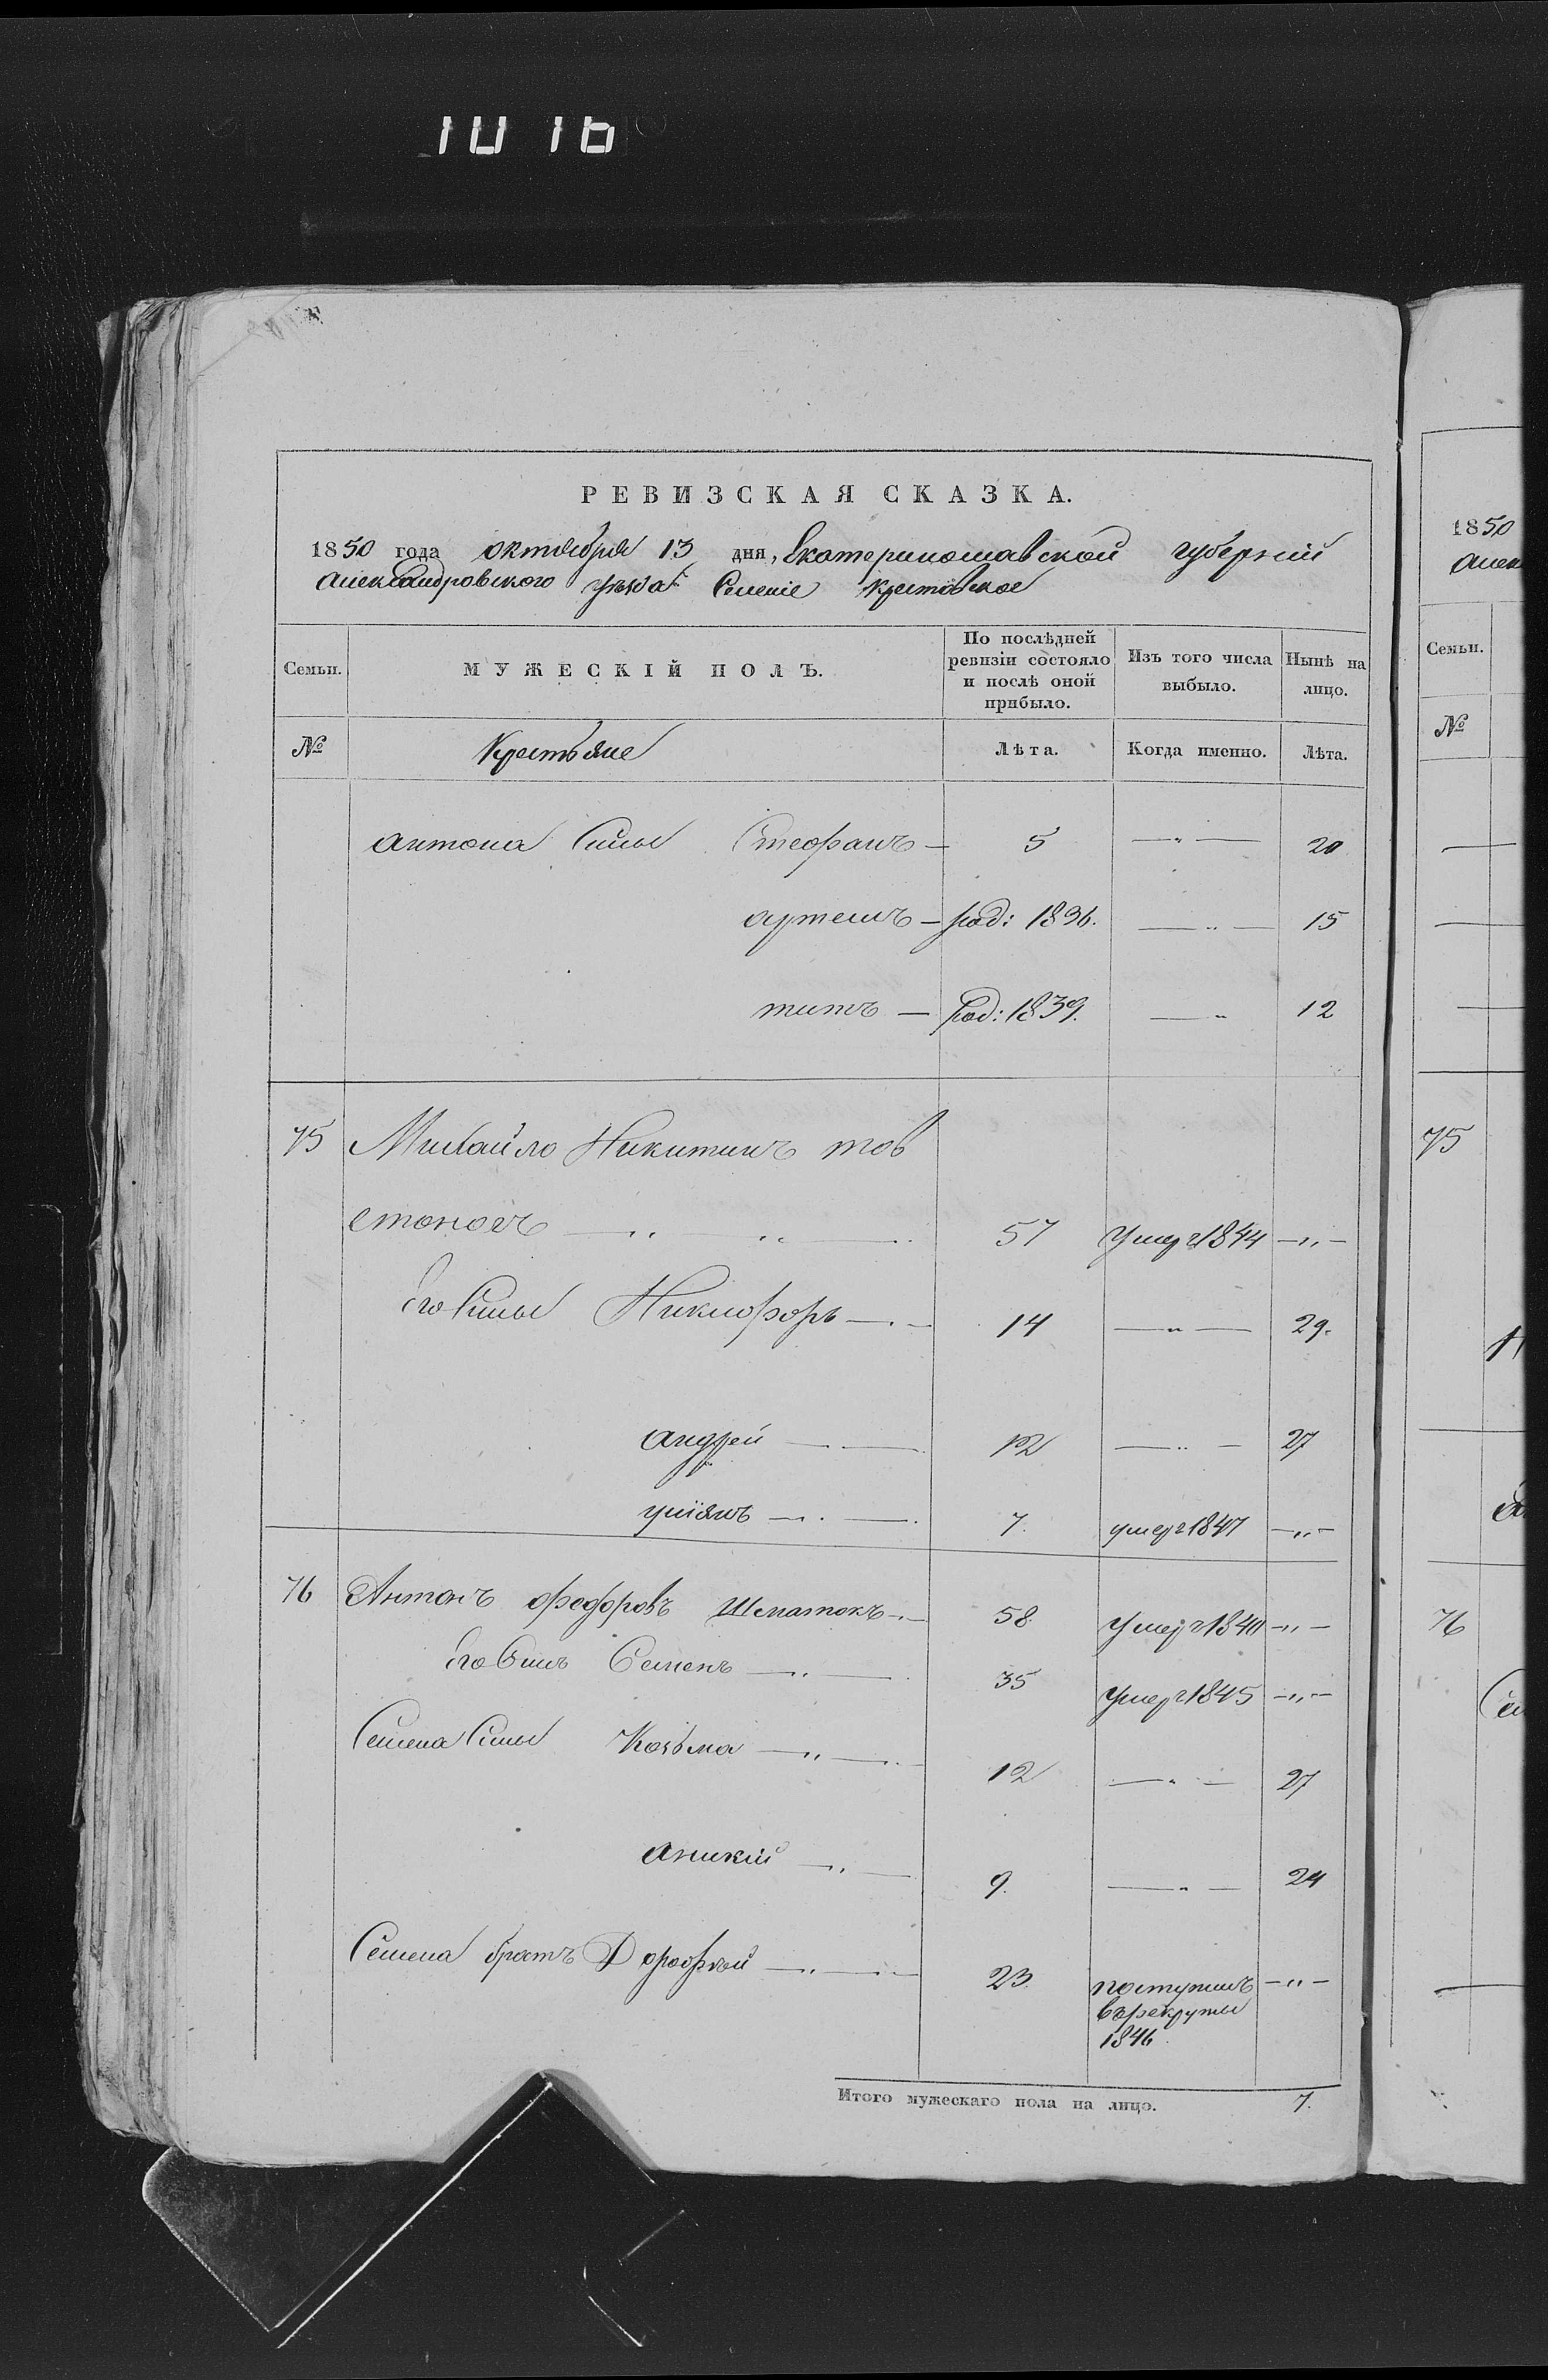 1016
РЕВИЗСКАЯ СКАЗКА.
1850 года октября 13 дня, Екатеринославской губерніи
Александровского уезда Селеніе Крестовское
Семьи.
МУЖЕСКІЙ ПОЛЪ.
По послѣдней ревизіи состояло и послѣ оной прибыло.
Изъ того числа выбыло.
Нынѣ на лицо.
№
Крестьяне
Лѣта.
Когда именно.
Лѣта.
Антона Сыны Стефанъ — 5 — „ — 20
Артемъ — род: 1836. — „ — 15
Титъ — род: 1839. — „ 12
75 Михайло Никитинъ тов
стоногъ — „ „ — 57 умер 1844 — „ —
Его Сыны Никифоръ — 14 — „ — 29.
Андрей — 12 — „ — 27
уліянъ — 7. умер 1847 — „ —
76 Антонъ Федоровъ Шматокъ — 58. умер 1840 — „ —
Его Сынъ Семенъ — „ — 35 умер 1845 — „ —
Семена Сыны Козьма — „ — 12 — „ — 27
Аникій — „ — 9. — „ — 24
Семена братъ Дорофей — „ — 23. поступилъ — „ —
въ рекруты
1846
Итого мужескаго пола на лицо. 7.
1850
Алек
Семьи.
№
75
76
Се